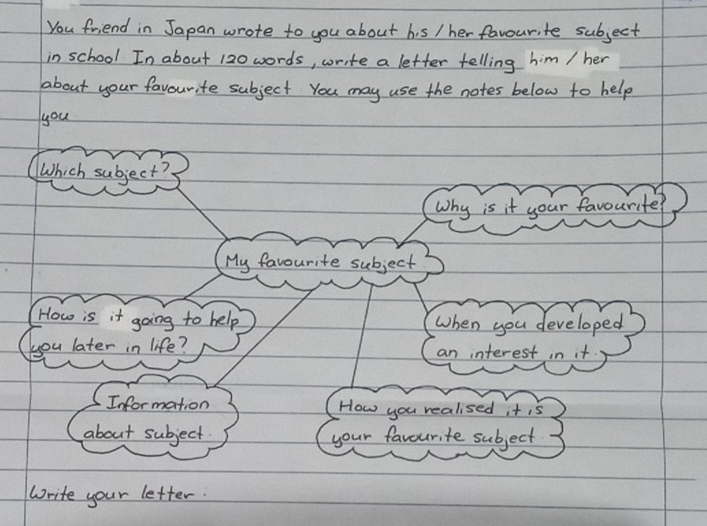 You friend in Japan wrote to you about his / her favourite subject
in school In about 120 words, write a letter telling him / her
about your favourite subject You may use the notes below to help
you
Which subject?
Why is it your favourite?
My favourite subject
How is it going to help
you later in life?
When you developed
an interest in it.
Information
about subject.
How you realised it is
your favourite subject
Write your letter.